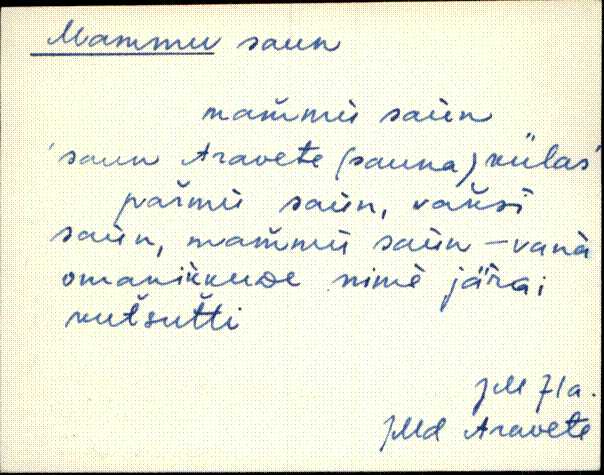 Mammu saun
mam̆mù saùn
'saun Aravete (sauna) külas'
par̆mù saùn, vak̆sì
saùn, mam̆mù saùn - vanà
omanik̀kuDe nimè jär̆ai
kut̆sut̆ti
JM 71a.
JMd Aravete